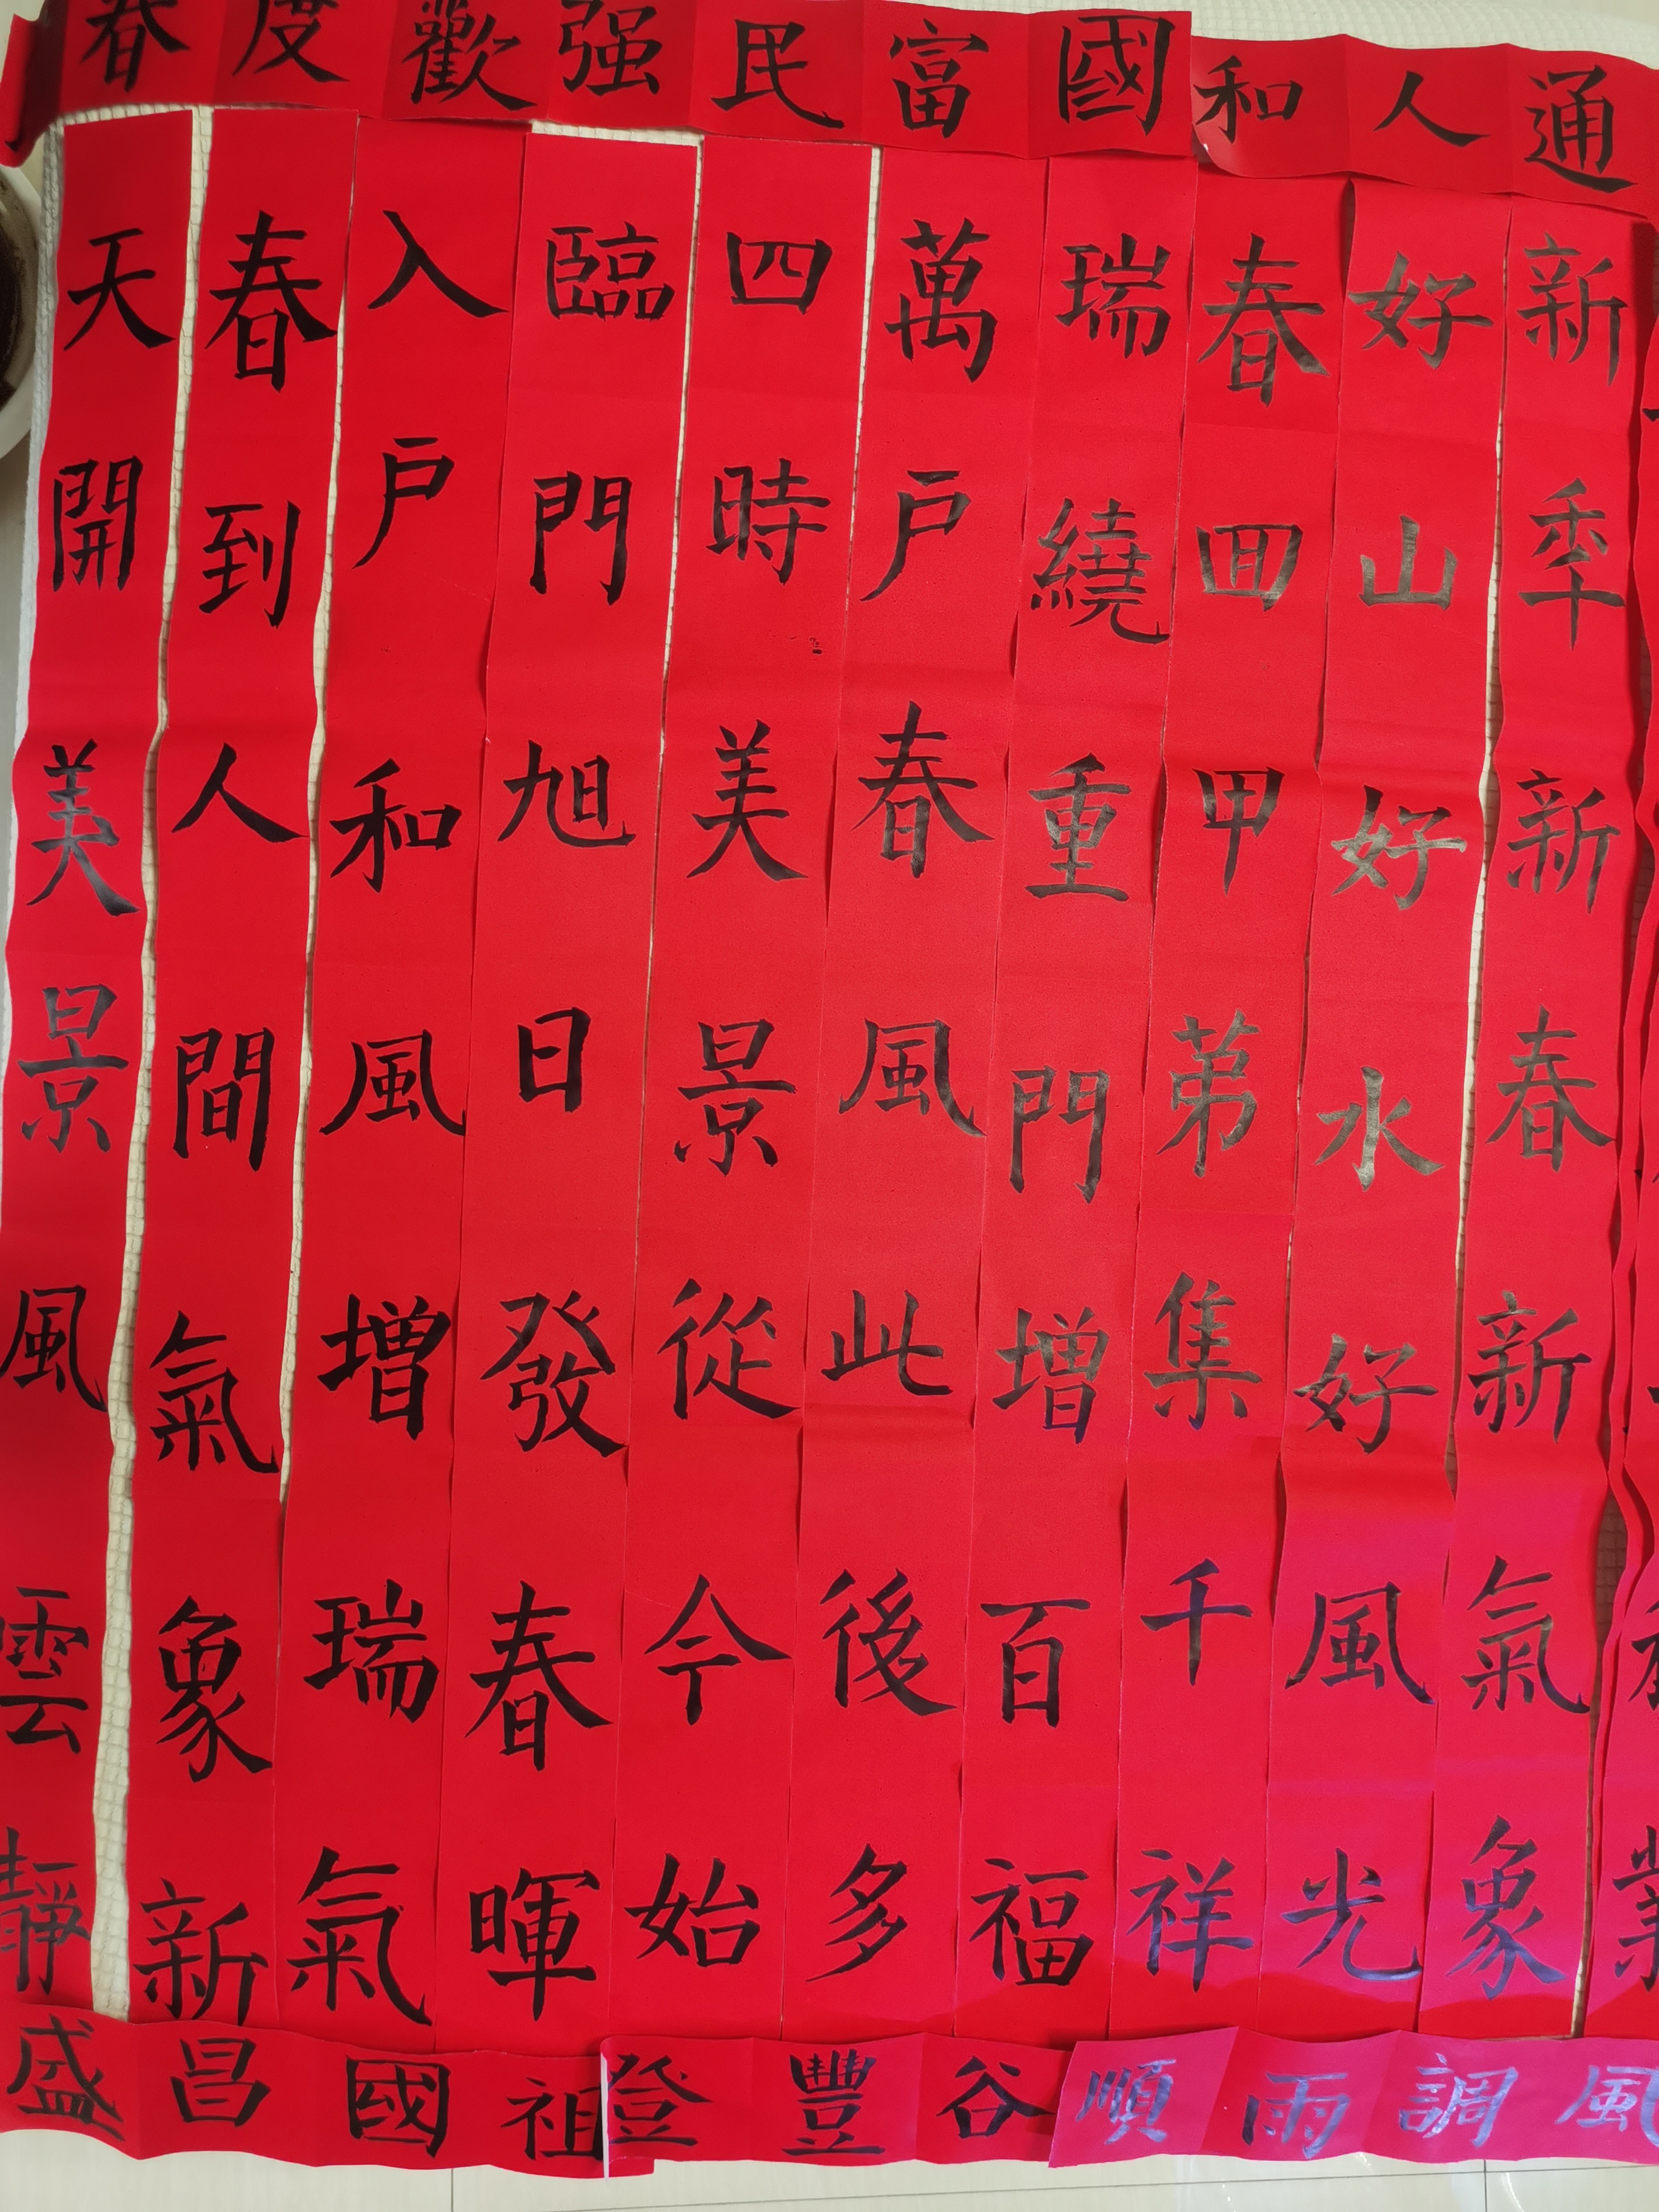 通人和
國富民强
歡度春
新秊新春新氣象
好山好水好風光
春囬甲苐集千祥
瑞繞重門增百福
萬户春風此後多
四時美景從今始
臨門旭日發春暉
入户和風增瑞氣
春到人間氣象新
天開美景風雲靜
風調雨順
谷豐登
祖國昌盛